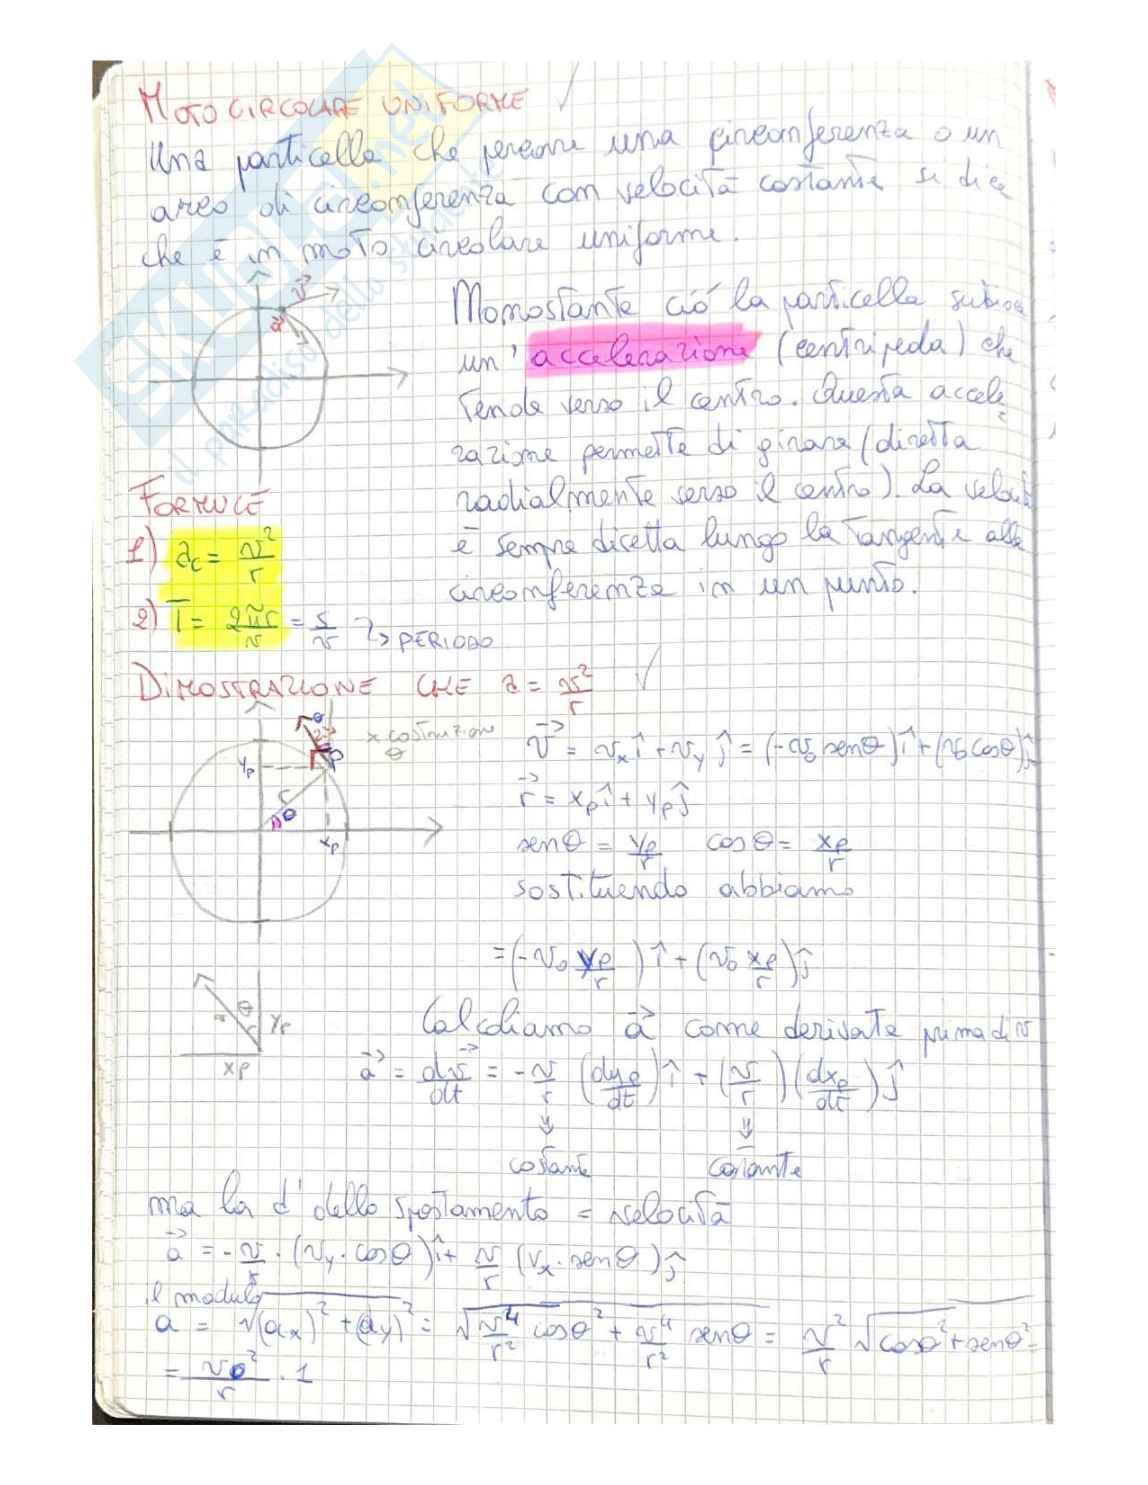 MOTO CIRCOLARE UNIFORME
Una particella che percorre una circonferenza o un
arco di circonferenza con velocità costante si dice
che è in moto circolare uniforme.
v
a
Nonostante ciò la particella subisce
un' accelerazione (centripeda) che
tende verso il centro. Questa accele
razione permette di girare (diretta
radialmente verso il centro). La velocità
è sempre diretta lungo la tangente alla
circonferenza in un punto.
FORMULE
1) ac = v²/r
2) T = 2πr/v = s/v → PERIODO
DIMOSTRAZIONE CHE a = v²/r
θ
x costruzione
θ
P
yp
r
θ
xp
v⃗ = vx î + vy ĵ = (-v₀ senθ) î + (v₀ cosθ) ĵ
r⃗ = xp î + yp ĵ
senθ = yp/r cosθ = xp/r
sostituendo abbiamo
= (-v₀ yp/r) î + (v₀ xp/r) ĵ
θ
yp
xp
Calcoliamo a⃗ come derivata prima di v
a⃗ = dv⃗/dt = -v/r (dyp/dt) î + (v/r) (dxp/dt) ĵ
costante costante
ma la d' dello spostamento = velocità
a⃗ = -v/r · (vy · cosθ) î + v/r (vx · senθ) ĵ
il modulo
a = √(ax)² + (ay)² = √v⁴/r² cosθ² + v⁴/r² senθ = v²/r √cosθ² + senθ² =
= v₀²/r · 1
SKUOLA.net
il paradiso dello studente